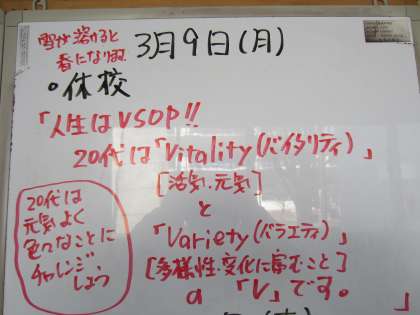 雪が溶けると
春になります
3月9日(月)
○休校
「人生はVSOP!!
20代は「Vitality(バイタリティ)」
[活気・元気]
と
「Variety(バラエティ)」
[多様性・変化に富むこと]
の「V」です。
20代は
元気よく
色々なことに
チャレンジ
しよう